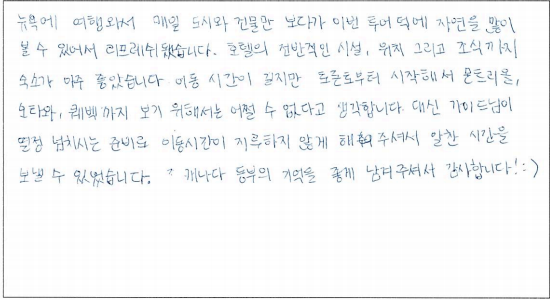 뉴욕에 여행와서 매일 도시와 건물만 보다가 이번 투어 덕에 자연을 많이
볼 수 있어서 리프레쉬 됐습니다. 호텔의 전반적인 시설, 위치 그리고 조식까지
숙소가 아주 좋았습니다 이동 시간이 길지만 토론토부터 시작해서 몬트리올,
오타와, 퀘백까지 보기 위해서는 어쩔 수 없다고 생각합니다 대신 가이드님이
열정 넘치시는 준비로 이동시간이 지루하지 않게 해 주셔서 알찬 시간을
보낼 수 있었습니다. 캐나다 동부의 기억을 좋게 남겨주셔서 감사합니다! :)